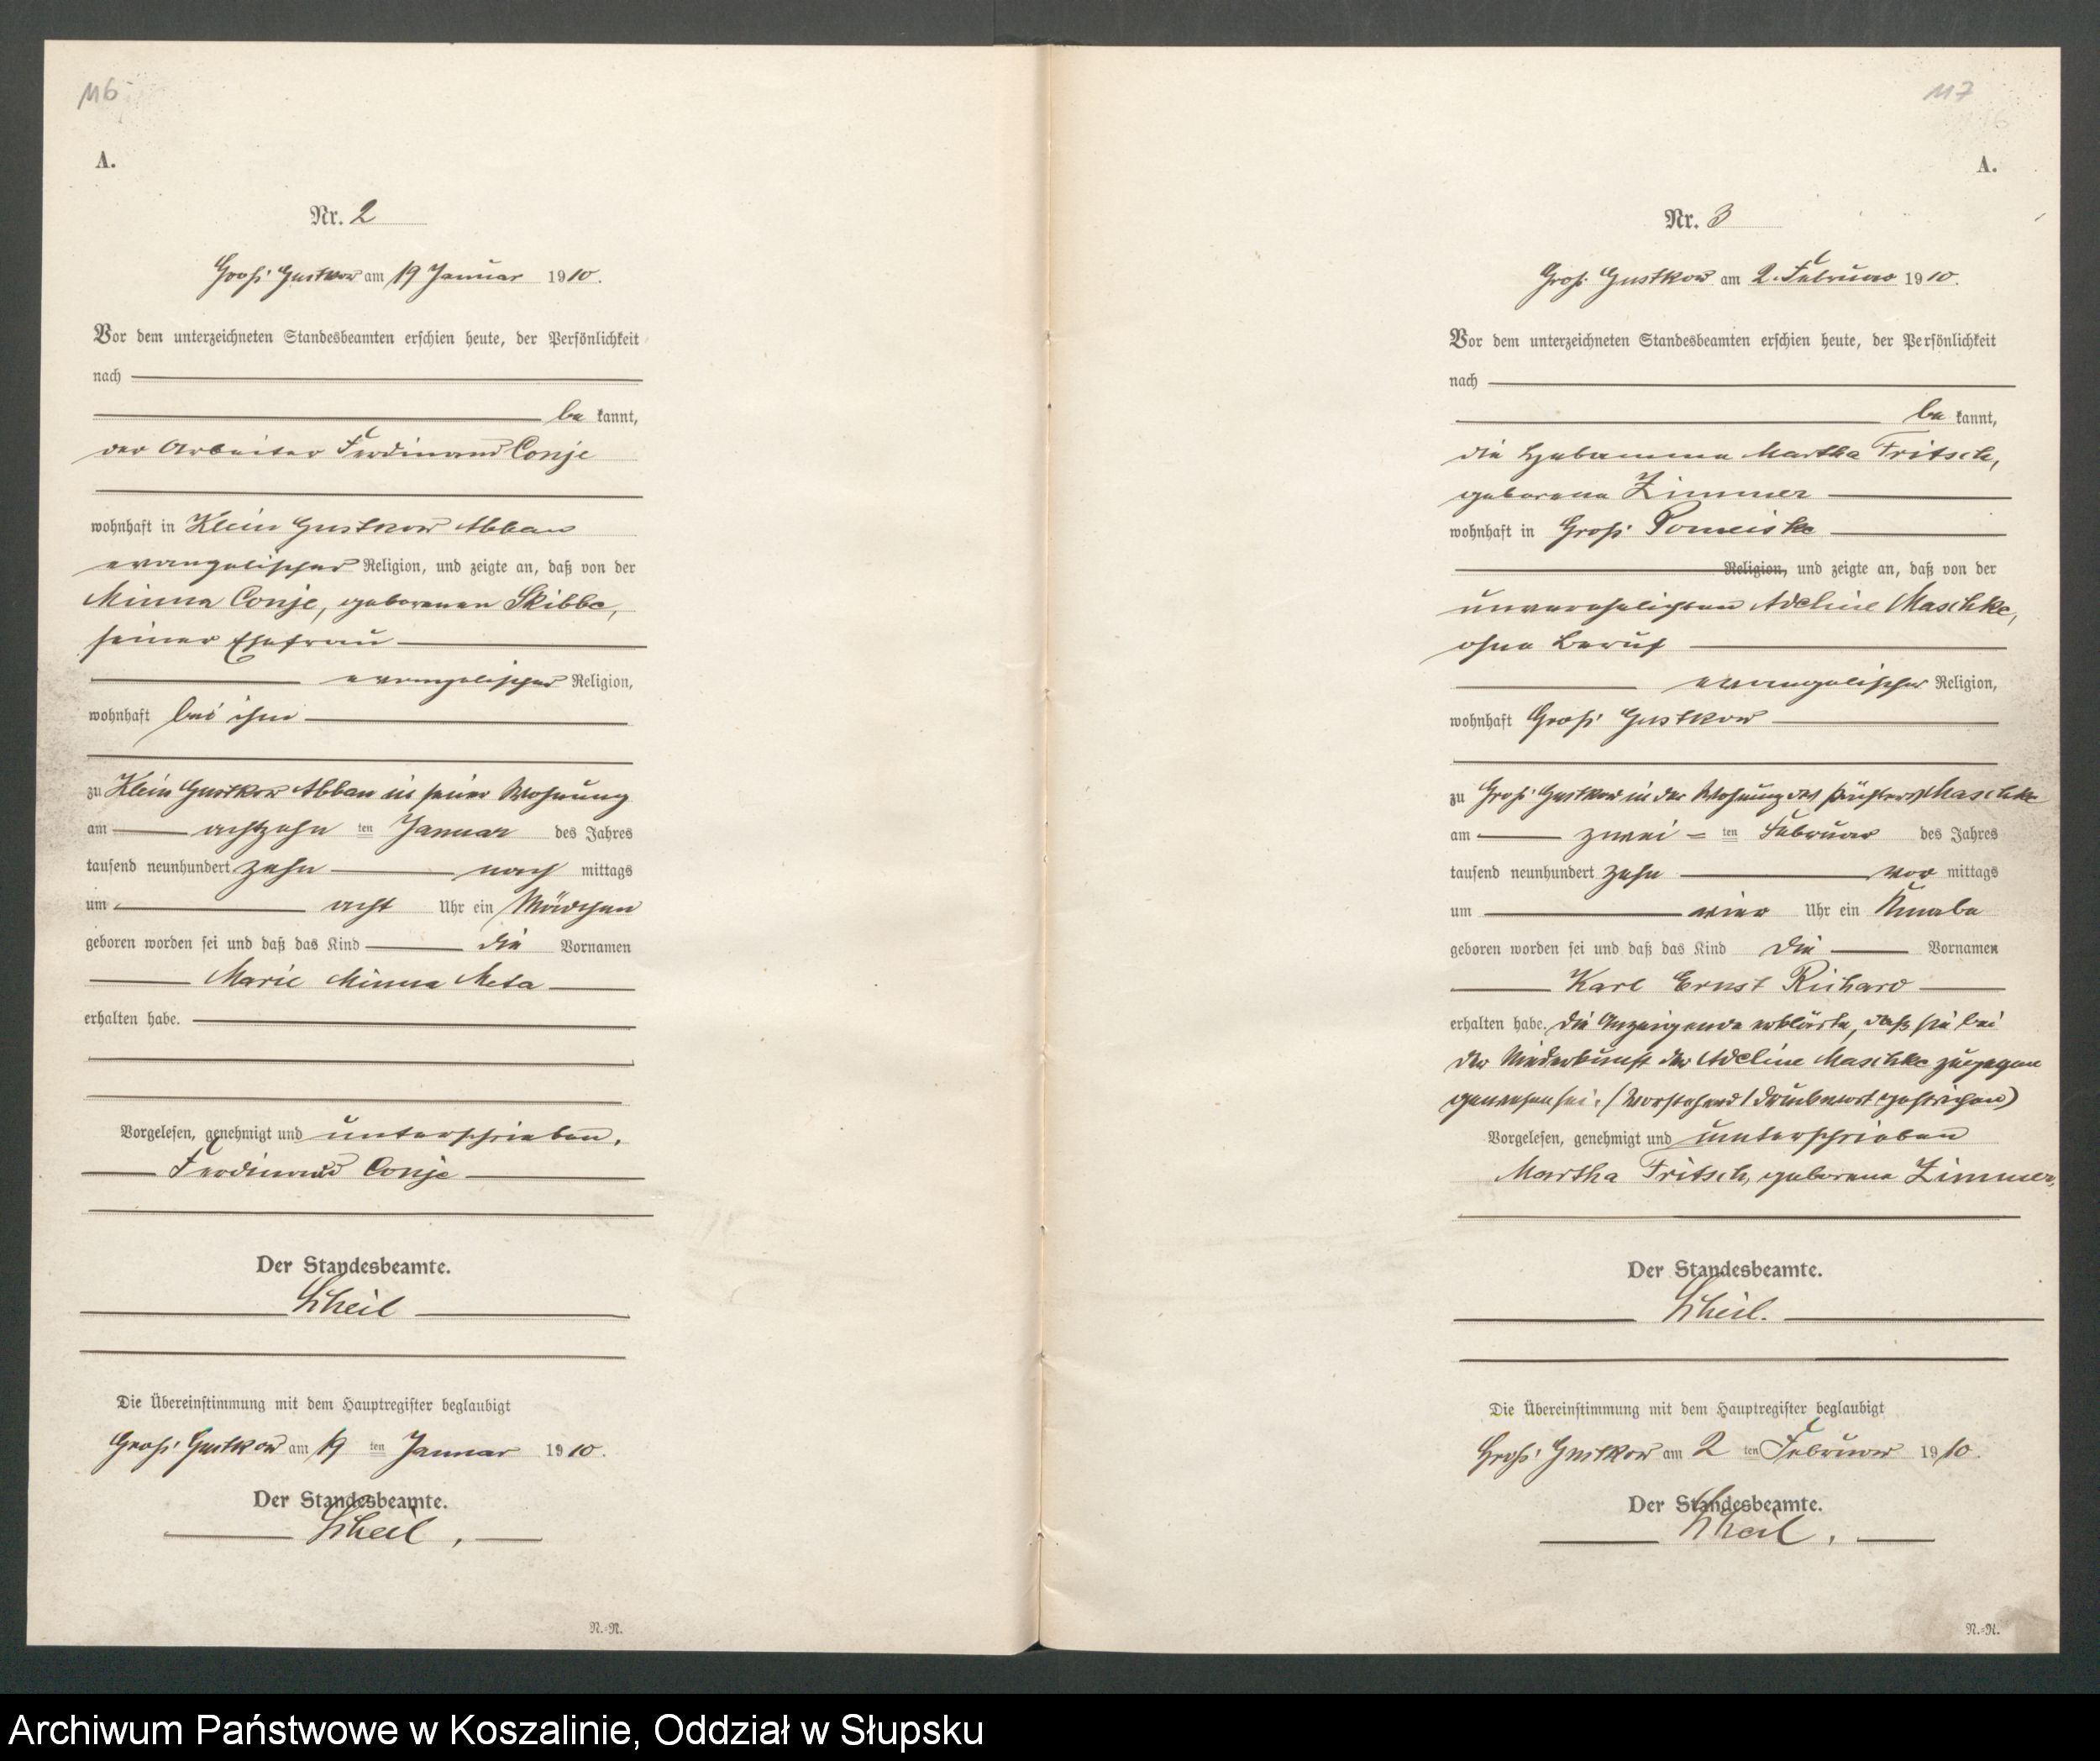 116
A.
Nr. 2
Groß Gustkow am 19 Januar 1910.
Vor dem unterzeichneten Standesbeamten erschien heute, der Persönlichkeit
nach
be kannt,
der Arbeiter Ferdinand Conje
wohnhaft in Klein Gustkow Abbau
evangelischer Religion, und zeigte an, daß von der
Minna Conje, geborenen Skibbe,
seiner Ehefrau
evangelischer Religion,
wohnhaft bei ihm
zu Klein Gustkow Abbau in seiner Wohnung
am achtzehn ten Januar des Jahres
tausend neunhundert zehn nach mittags
um acht Uhr ein Mädchen
geboren worden sei und daß das Kind die Vornamen
Marie Minna Meta
erhalten habe.
Vorgelesen, genehmigt und unterschrieben.
Ferdinand Conje
Der Standesbeamte.
Scheil
Die Übereinstimmung mit dem Hauptregister beglaubigt
Groß Gustkow am 19 ten Januar 1910.
Der Standesbeamte.
Scheil.
N.-N.
117
A.
Nr. 3
Groß Gustkow am 2. Februar 1910.
Vor dem unterzeichneten Standesbeamten erschien heute, der Persönlichkeit
nach
be kannt,
die Hebamme Martha Fritsch,
geborene Zimmer
wohnhaft in Groß Pomeiske
Religion, und zeigte an, daß von der
unverehelichten Adeline Maschke,
ohne Beruf
evangelischer Religion,
wohnhaft Groß Gustkow
zu Groß Gustkow in der Wohnung des Pächters Maschke
am zwei ten Februar des Jahres
tausend neunhundert zehn vor mittags
um vier Uhr ein Knabe
geboren worden sei und daß das Kind die Vornamen
Karl Ernst Richard
erhalten habe. Die Anzeigende erklärte, daß sie bei
der Niederkunft der Adeline Maschke zugegen
gewesen sei. (Vorstehend 1 Druckwort gestrichen)
Vorgelesen, genehmigt und unterschrieben
Martha Fritsch, geborene Zimmer,
Der Standesbeamte.
Scheil.
Die Übereinstimmung mit dem Hauptregister beglaubigt
Groß Gustkow am 2 ten Februar 1910.
Der Standesbeamte.
Scheil.
N.-N.
Archiwum Państwowe w Koszalinie, Oddział w Słupsku